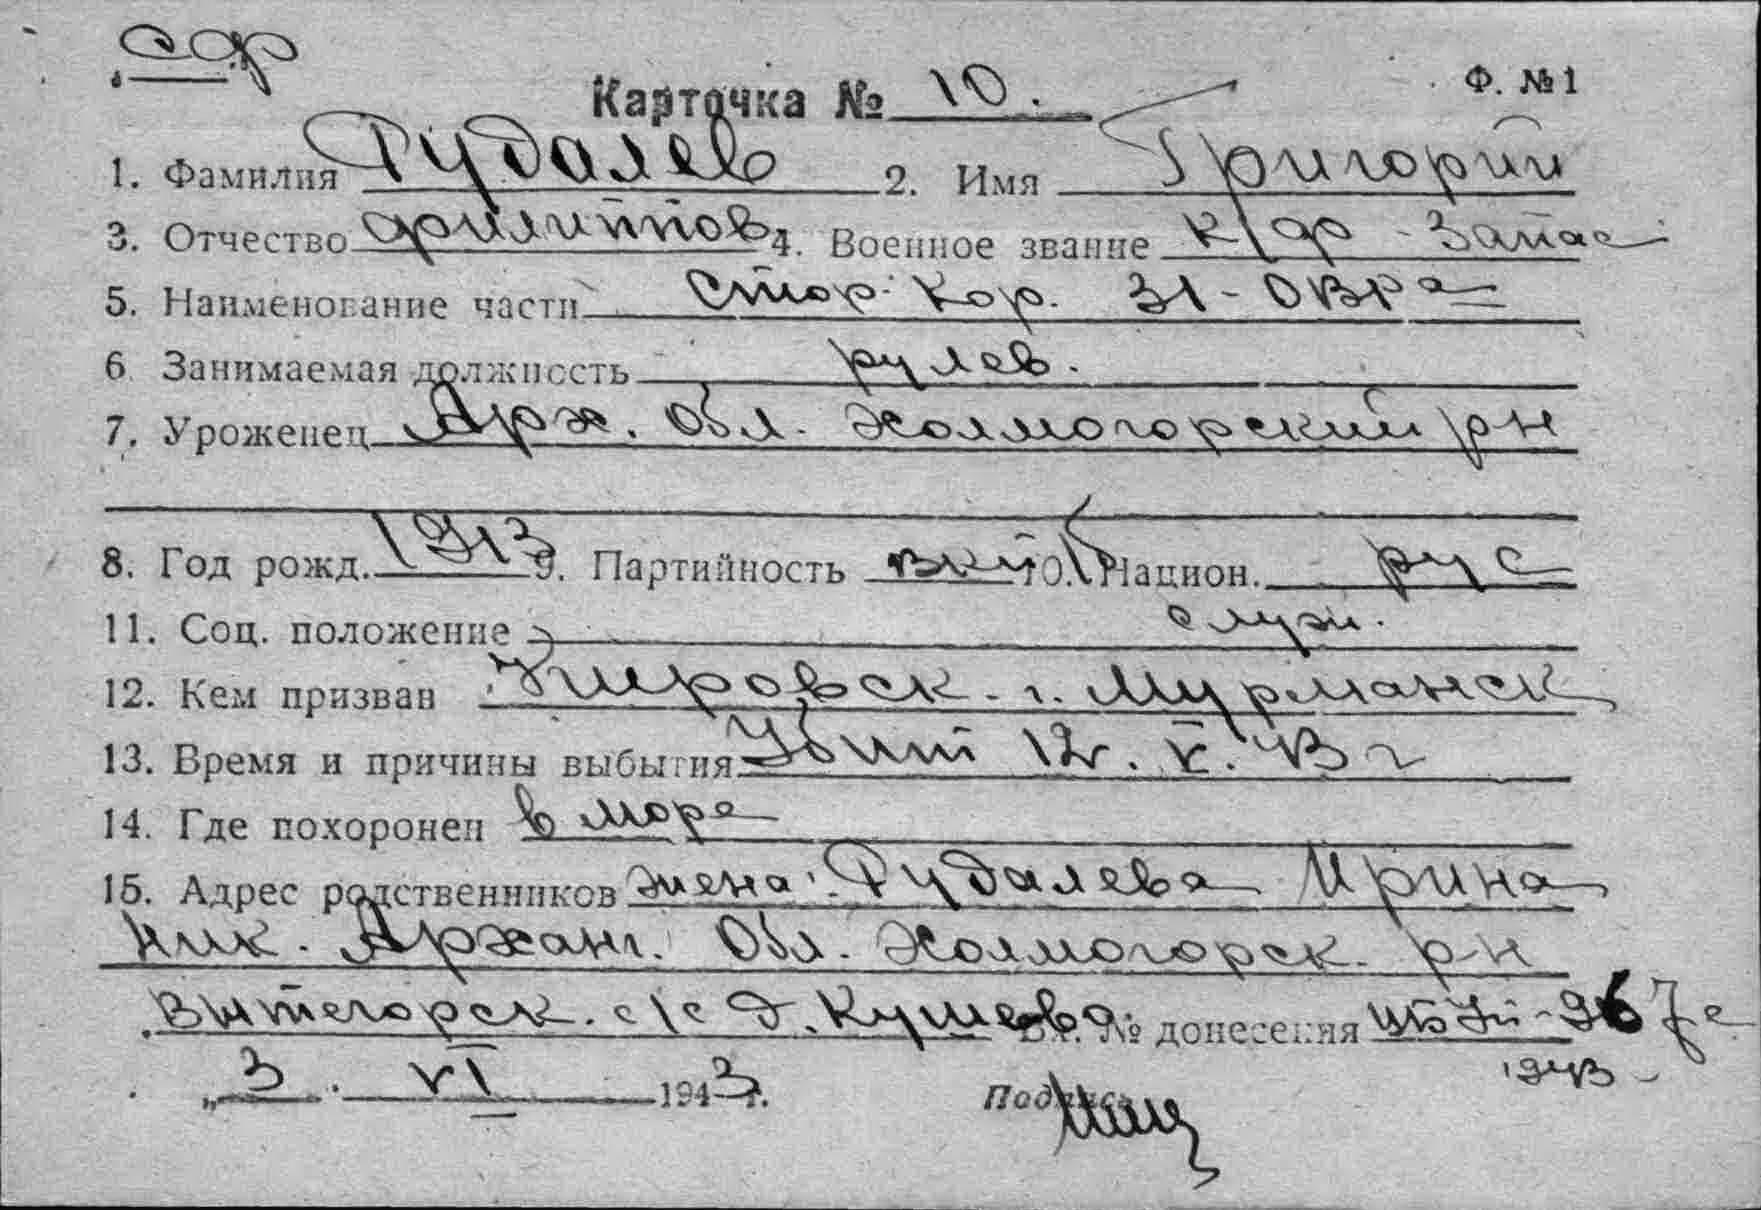 сф
Карточка № 10.
Ф. №1
1. Фамилия Рудалев 2. Имя Григорий
3. Отчество Филиппов. 4. Военное звание к/ф - запас
5. Наименование части Стор. Кор. 31 - ОВРа
6. Занимаемая должность рулев.
7. Уроженец Арх. Обл. Холмогорский рн
8. Год рожд. 1913 9. Партийность вкпб 10. Национ. рус
11. Соц. положение служ.
12. Кем призван Кировск. г. Мурманск
13. Время и причины выбытия Убит 12. V. 43 г
14. Где похоронен в море
15. Адрес родственников жена: Рудалева Ирина
Ник. Арханг. Обл. Холмогорск. р-н
Вытегорск. с/с д. Кушева. Вх. № донесения 967с
1943
„3. VI 1943 г. Подпись